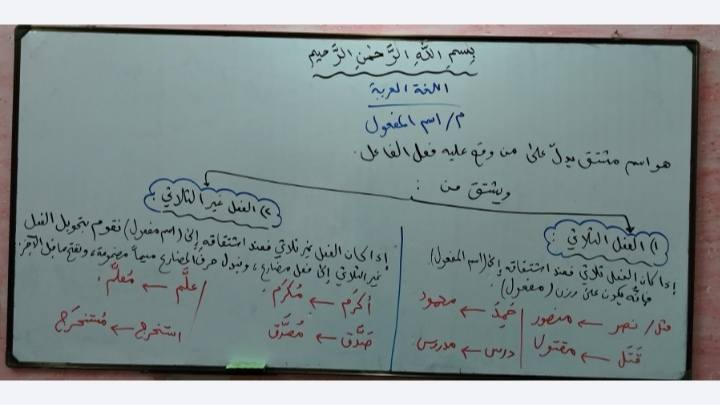 بِسمِ اللَّهِ الرَّحْمنِ الرَّحيمِ
اللغة العربية
م/ اسم المفعول
هو اسم مشتق يدلّ على من وقع عليه فعل الفاعل.
ويشتق من :
١) الفعل الثلاثي :
إذا كان الفعل ثلاثي فعند اشتقاقه إلى (اسم المفعول)
فإنّه يكون على وزن (مفعول).
مثل/ نصر ← منصور
قَتَل ← مقتول
حَمِدَ ← محمود
درس ← مدروس
٢) الفعل غير الثلاثي :
إذا كان الفعل غير ثلاثي فعند اشتقاقه إلى (اسم مفعول) نقوم بتحويل الفعل
غير الثلاثي إلى فعل مضارع، ونبدل حرف المضارع ميماً مضمومة، ونفتح ما قبل الآخر.
أكرَم ← مُكرَم
صَدَّق ← مُصَدَّق
علَّم ← مُعلَّم
استخرج ← مُستخرَج